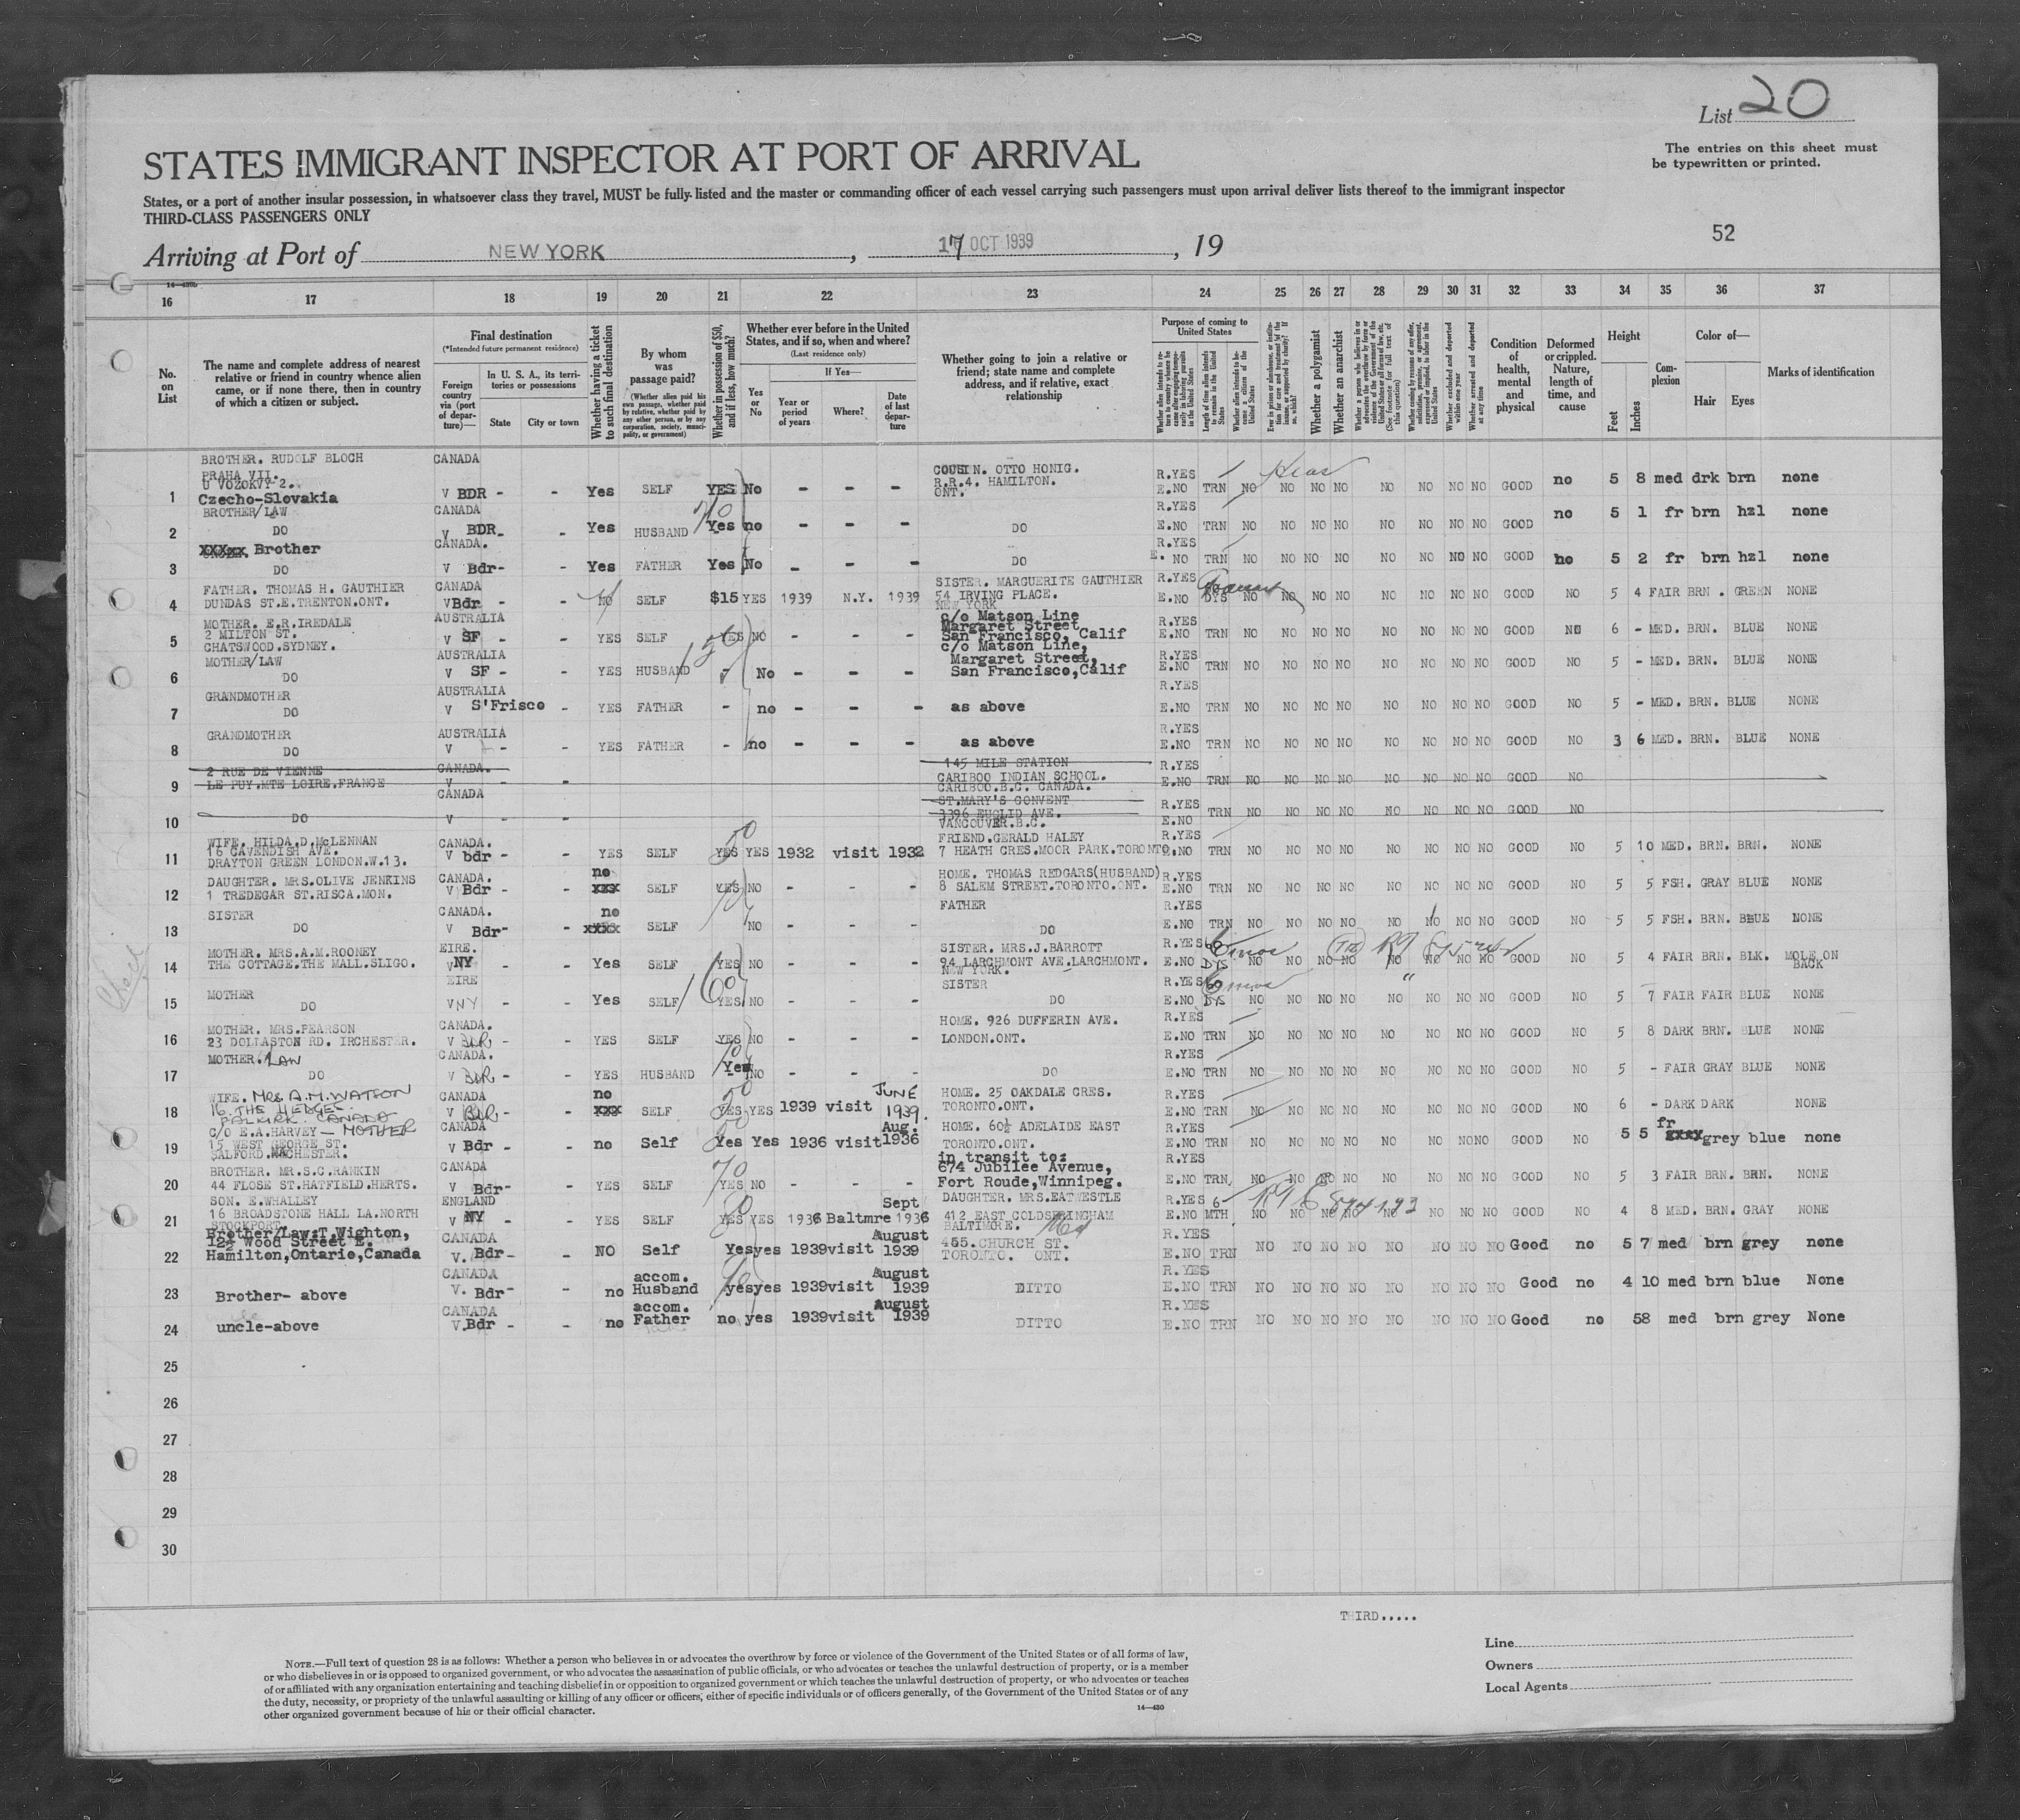 List 20
The entries on this sheet must
be typewritten or printed.
STATES IMMIGRANT INSPECTOR AT PORT OF ARRIVAL
States, or a port of another insular possession, in whatsoever class they travel, MUST be fully listed and the master or commanding officer of each vessel carrying such passengers must upon arrival deliver lists thereof to the immigrant inspector
THIRD-CLASS PASSENGERS ONLY
52
Arriving at Port of NEW YORK, 17 OCT 1939, 19
16 17 18 19 20 21 22 23 24 25 26 27 28 29 30 31 32 33 34 35 36 37
No. on List
The name and complete address of nearest
relative or friend in country whence alien
came, or if none there, then in country
of which a citizen or subject.
Final destination
(*Intended future permanent residence)
Foreign country via (port of departure)—
In U. S. A., its territories or possessions
State
City or town
Whether having a ticket to such final destination
By whom was passage paid?
(Whether alien paid his own passage, whether paid by relative, whether paid by any other person, or by any corporation, society, municipality, or government)
Whether in possession of $50, and if less, how much?
Whether ever before in the United States, and if so, when and where?
(Last residence only)
Yes or No
If Yes—
Year or period of years
Where?
Date of last departure
Whether going to join a relative or
friend; state name and complete
address, and if relative, exact
relationship
Purpose of coming to United States
Whether a polygamist
Whether an anarchist
Condition of health, mental and physical
Deformed or crippled. Nature, length of time, and cause
Height
Feet
Inches
Complexion
Color of—
Hair
Eyes
Marks of identification
BROTHER. RUDOLF BLOCH CANADA
PRAHA VII. COUSIN. OTTO HONIG. R.YES
U VOZOKVY 2. R.R.4. HAMILTON.
1 Czecho-Slovakia V BDR - - Yes SELF YES No - - - ONT. E.NO TRN NO NO NO NO NO NO NO NO GOOD no 5 8 med drk brn none
BROTHER/LAW CANADA R.YES
2 DO V BDR - - Yes HUSBAND Yes no - - - DO E.NO TRN NO NO NO NO NO NO NO NO GOOD no 5 1 fr brn hzl none
Brother CANADA. R.YES
3 DO V Bdr - - Yes FATHER Yes No - - - DO E. NO TRN NO NO NO NO NO NO NO NO GOOD no 5 2 fr brn hzl none
FATHER. THOMAS H. GAUTHIER CANADA SISTER. MARGUERITE GAUTHIER R.YES
4 DUNDAS ST.E.TRENTON.ONT. V Bdr - - NO SELF $15 YES 1939 N.Y. 1939 54 IRVING PLACE. E.NO DYS NO NO NO NO NO NO NO NO GOOD NO 5 4 FAIR BRN. GREEN NONE
NEW YORK
MOTHER. E.R.IREDALE AUSTRALIA c/o Matson Line R.YES
2 MILTON ST. Margaret Street,
5 CHATSWOOD.SYDNEY. V SF - - YES SELF YES NO - - - San Francisco, Calif E.NO TRN NO NO NO NO NO NO NO NO GOOD NO 6 - MED. BRN. BLUE NONE
MOTHER/LAW AUSTRALIA c/o Matson Line, R.YES
Margaret Street,
6 DO V SF - - YES HUSBAND No - - - San Francisco,Calif E.NO TRN NO NO NO NO NO NO NO NO GOOD NO 5 - MED. BRN. BLUE NONE
GRANDMOTHER AUSTRALIA R.YES
7 DO V S'Frisco - YES FATHER - no - - - as above E.NO TRN NO NO NO NO NO NO NO NO GOOD NO 5 - MED. BRN. BLUE NONE
GRANDMOTHER AUSTRALIA R.YES
8 DO V - - YES FATHER - no - - - as above E.NO TRN NO NO NO NO NO NO NO NO GOOD NO 3 6 MED. BRN. BLUE NONE
2 RUE DE VIENNE CANADA. 145 MILE STATION R.YES
9 LE PUY.MTE LOIRE.FRANCE V - - CARIBOO INDIAN SCHOOL. E.NO TRN NO NO NO NO NO NO NO NO GOOD NO
CARIBOO.B.C. CANADA.
CANADA ST.MARY'S CONVENT R.YES
10 DO V - - 3396 EUCLID AVE. E.NO TRN NO NO NO NO NO NO NO NO GOOD NO
VANCOUVER.B.C.
WIFE. HILDA.D.McLENNAN CANADA. FRIEND.GERALD HALEY R.YES
16 CAVENDISH AVE. 50
11 DRAYTON GREEN LONDON.W.13. V bdr - - YES SELF YES YES 1932 visit 1932 7 HEATH CRES.MOOR PARK.TORONTO E.NO TRN NO NO NO NO NO NO NO NO GOOD NO 5 10 MED. BRN. BRN. NONE
DAUGHTER. MRS.OLIVE JENKINS CANADA. no HOME. THOMAS REDGARS(HUSBAND) R.YES
12 1 TREDEGAR ST.RISCA.MON. V Bdr - - xxx SELF YES NO - - - 8 SALEM STREET.TORONTO.ONT. E.NO TRN NO NO NO NO NO NO NO NO GOOD NO 5 5 FSH. GRAY BLUE NONE
SISTER CANADA. no FATHER R.YES
13 DO V Bdr - - xxxx SELF NO - - - DO E.NO TRN NO NO NO NO NO NO NO NO GOOD NO 5 5 FSH. BRN. BLUE NONE
MOTHER. MRS.A.M.ROONEY EIRE. SISTER. MRS.J.BARROTT R.YES 60 6 mos
14 THE COTTAGE.THE MALL.SLIGO. V NY - - Yes SELF YES NO - - - 94 LARCHMONT AVE.LARCHMONT. E.NO DYS NO NO NO NO NO NO NO GOOD NO 5 4 FAIR BRN. BLK. MOLE ON BACK
NEW YORK.
MOTHER EIRE SISTER R.YES 60 6 mos "
15 DO V NY - - Yes SELF YES NO - - - DO E.NO DYS NO NO NO NO NO NO NO NO GOOD NO 5 7 FAIR FAIR BLUE NONE
160
MOTHER. MRS.PEARSON CANADA. HOME. 926 DUFFERIN AVE. R.YES
16 23 DOLLASTON RD. IRCHESTER. V BDR - - YES SELF YES NO - - - LONDON.ONT. E.NO TRN NO NO NO NO NO NO NO NO GOOD NO 5 8 DARK BRN. BLUE NONE
MOTHER. LAW CANADA. Yes R.YES
17 DO V BDR - - YES HUSBAND - NO DO E.NO TRN NO NO NO NO NO NO NO NO GOOD NO 5 - FAIR GRAY BLUE NONE
WIFE. MRS A.M. WATSON CANADA no 50 JUNE HOME. 25 OAKDALE CRES. R.YES
18 16 THE HEDGES V BDR - - xxx SELF YES YES 1939 visit 1939. TORONTO.ONT. E.NO TRN NO NO NO NO NO NO NO NO GOOD NO 6 - DARK DARK NONE
FALKIRK. CANADA
C/O E.A.HARVEY — MOTHER CANADA Aug. HOME. 60½ ADELAIDE EAST R.YES fr
19 15 WEST GEORGE ST. V Bdr - - no Self Yes Yes 1936 visit 1936 TORONTO.ONT. E.NO TRN NO NO NO NO NO NO NO NO GOOD NO 5 5 grey blue none
SALFORD.
BROTHER. MR.S.C.RANKIN CANADA 70 in transit to: R.YES
674 Jubilee Avenue,
20 44 FLOSE ST.HATFIELD.HERTS. V Bdr - - YES SELF YES NO - - - Fort Roude,Winnipeg. E.NO TRN NO NO NO NO NO NO NO NO GOOD NO 5 3 FAIR BRN. BRN. NONE
SON. E.WHALLEY ENGLAND Sept DAUGHTER. MRS.EATWESTLE R.YES 6
21 16 BROADSTONE HALL LA.NORTH V NY - - YES SELF YES YES 1936 Baltmre 1936 412 EAST COLDSPRINGHAM E.NO MTH NO NO NO NO NO NO NO NO GOOD NO 4 8 MED. BRN. GRAY NONE
STOCKPORT. BALTIMORE. Md
Brother/Law:T.Wighton, CANADA August 455.CHURCH ST. R.YES
12½ Wood Street E.
22 Hamilton,Ontario,Canada V. Bdr - - NO Self Yes yes 1939 visit 1939 TORONTO. ONT. E.NO TRN NO NO NO NO NO NO NO NO Good no 5 7 med brn grey none
CANADA accom. August R.YES
23 Brother- above V. Bdr - - no Husband yes yes 1939 visit 1939 DITTO E.NO TRN NO NO NO NO NO NO NO NO Good no 4 10 med brn blue None
CANADA accom. August R.YES
24 uncle-above V.Bdr - - no Father no yes 1939 visit 1939 DITTO E.NO TRN NO NO NO NO NO NO NO NO Good no 58 med brn grey None
25
26
27
28
29
30
THIRD.....
Line
Owners
Local Agents
NOTE.—Full text of question 28 is as follows: Whether a person who believes in or advocates the overthrow by force or violence of the Government of the United States or of all forms of law,
or who disbelieves in or is opposed to organized government, or who advocates the assassination of public officials, or who advocates or teaches the unlawful destruction of property, or is a member
of or affiliated with any organization entertaining and teaching disbelief in or opposition to organized government or which teaches the unlawful destruction of property, or who advocates or teaches
the duty, necessity, or propriety of the unlawful assaulting or killing of any officer or officers, either of specific individuals or of officers generally, of the Government of the United States or of any
other organized government because of his or their official character.
14—430